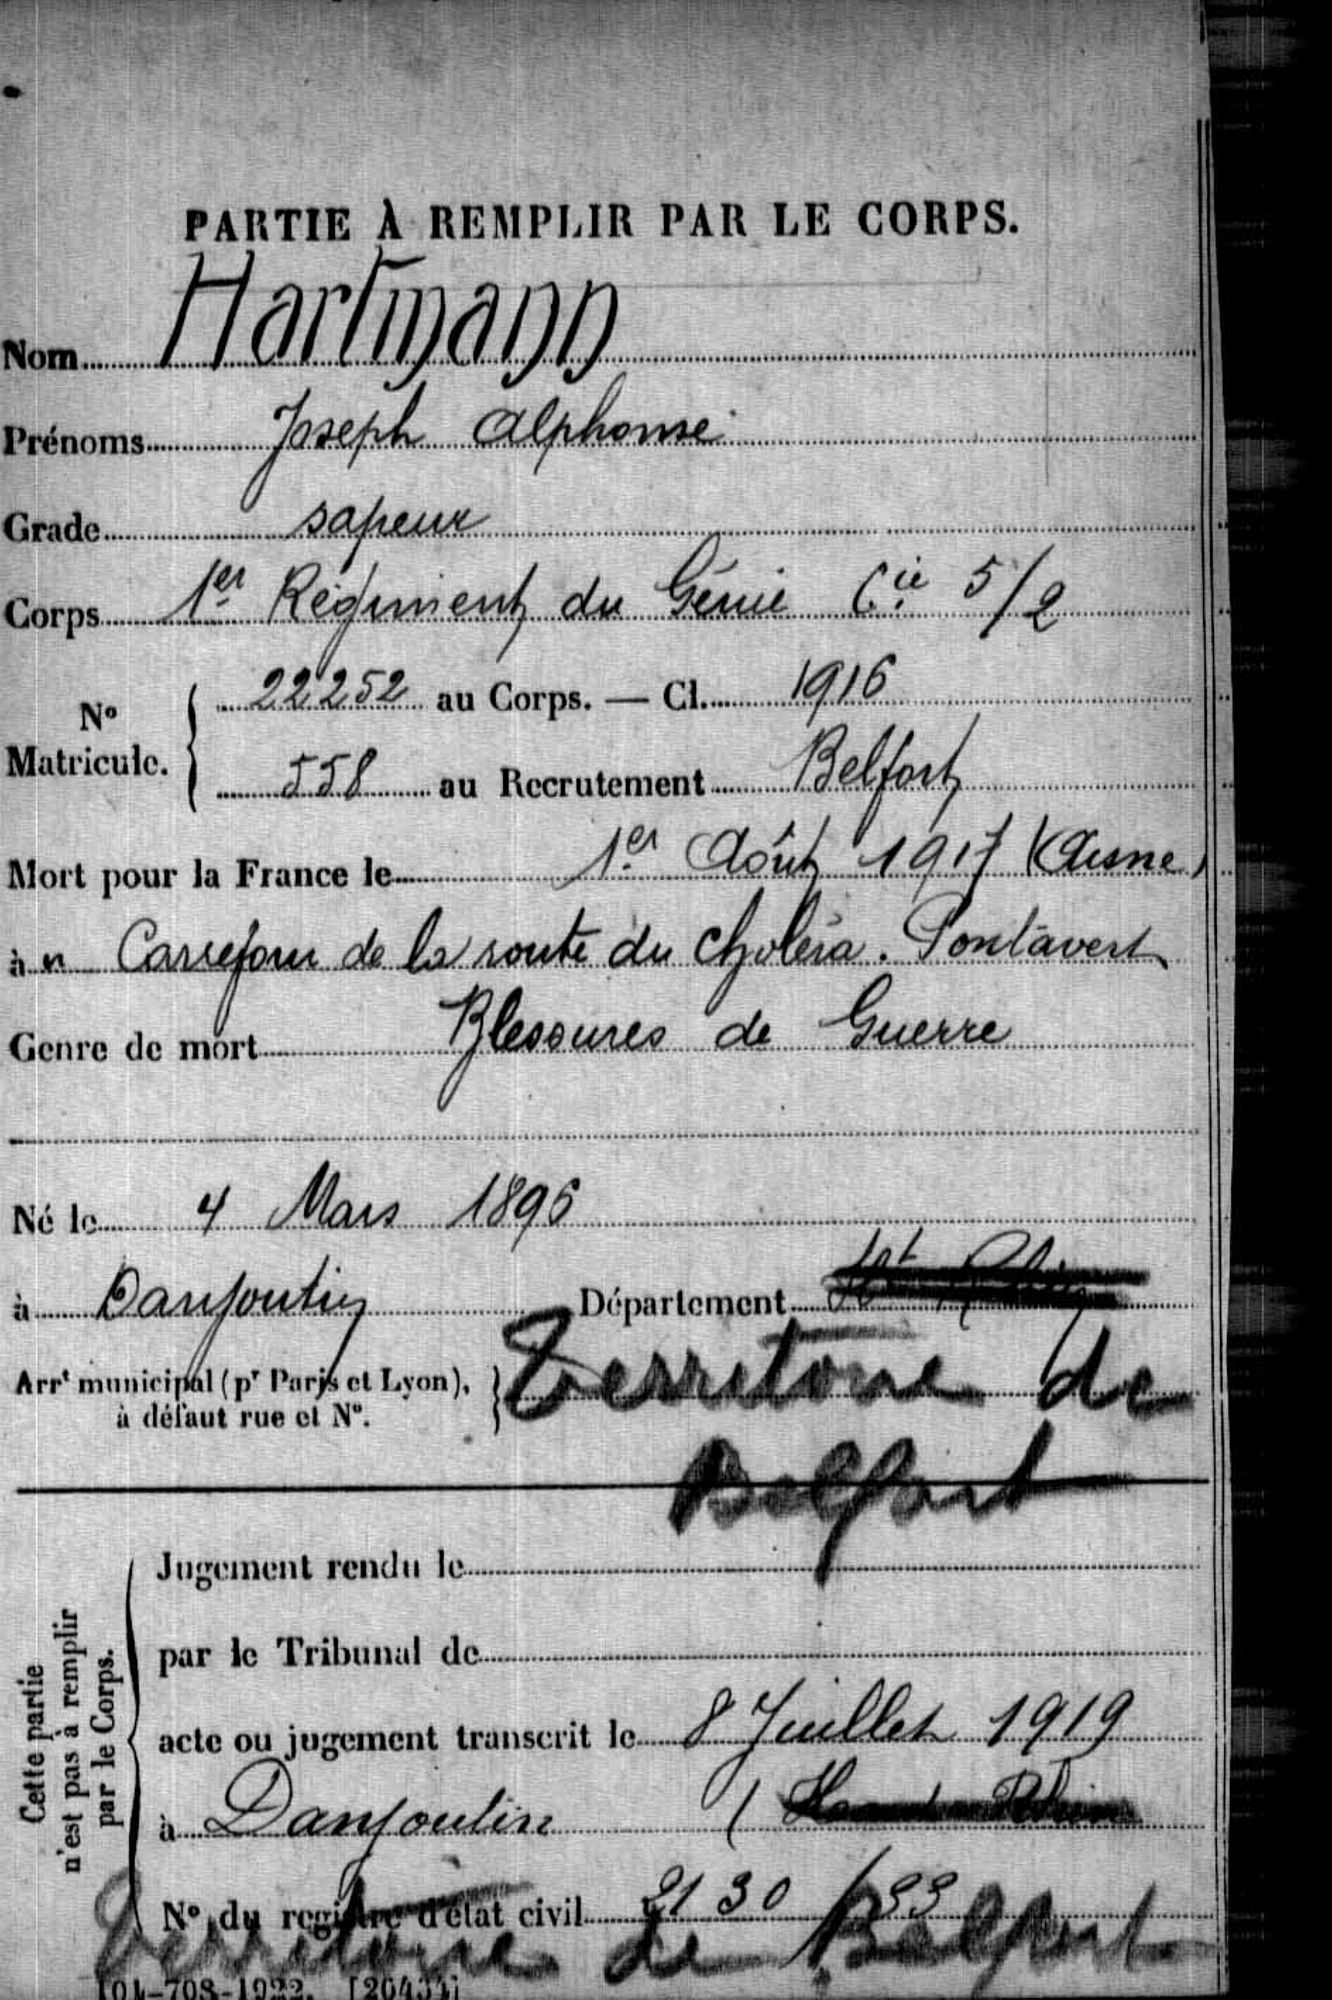 PARTIE À REMPLIR PAR LE CORPS.
Nom Hartmann
Prénoms Joseph Alphonse
Grade sapeur
Corps 1er Régiment du Génie Cie 5/2
N° Matricule. 22252 au Corps. — Cl. 1916
558 au Recrutement Belfort
Mort pour la France le 1er Août 1917 (Aisne)
à Carrefour de la route du Choléra. Pontavert
Genre de mort Blessures de Guerre
Né le 4 Mars 1896
à Danjoutin Département Ht Rhin
Arrt municipal (pr Paris et Lyon), à défaut rue et N°. Territoire de
Belfort
Cette partie n'est pas à remplir par le Corps.
Jugement rendu le
par le Tribunal de
acte ou jugement transcrit le 8 Juillet 1919
à Danjoutin (Haut Rhin
N° du registre d'état civil 2130/33
Territoire de Belfort
101-708-1922. [20434]